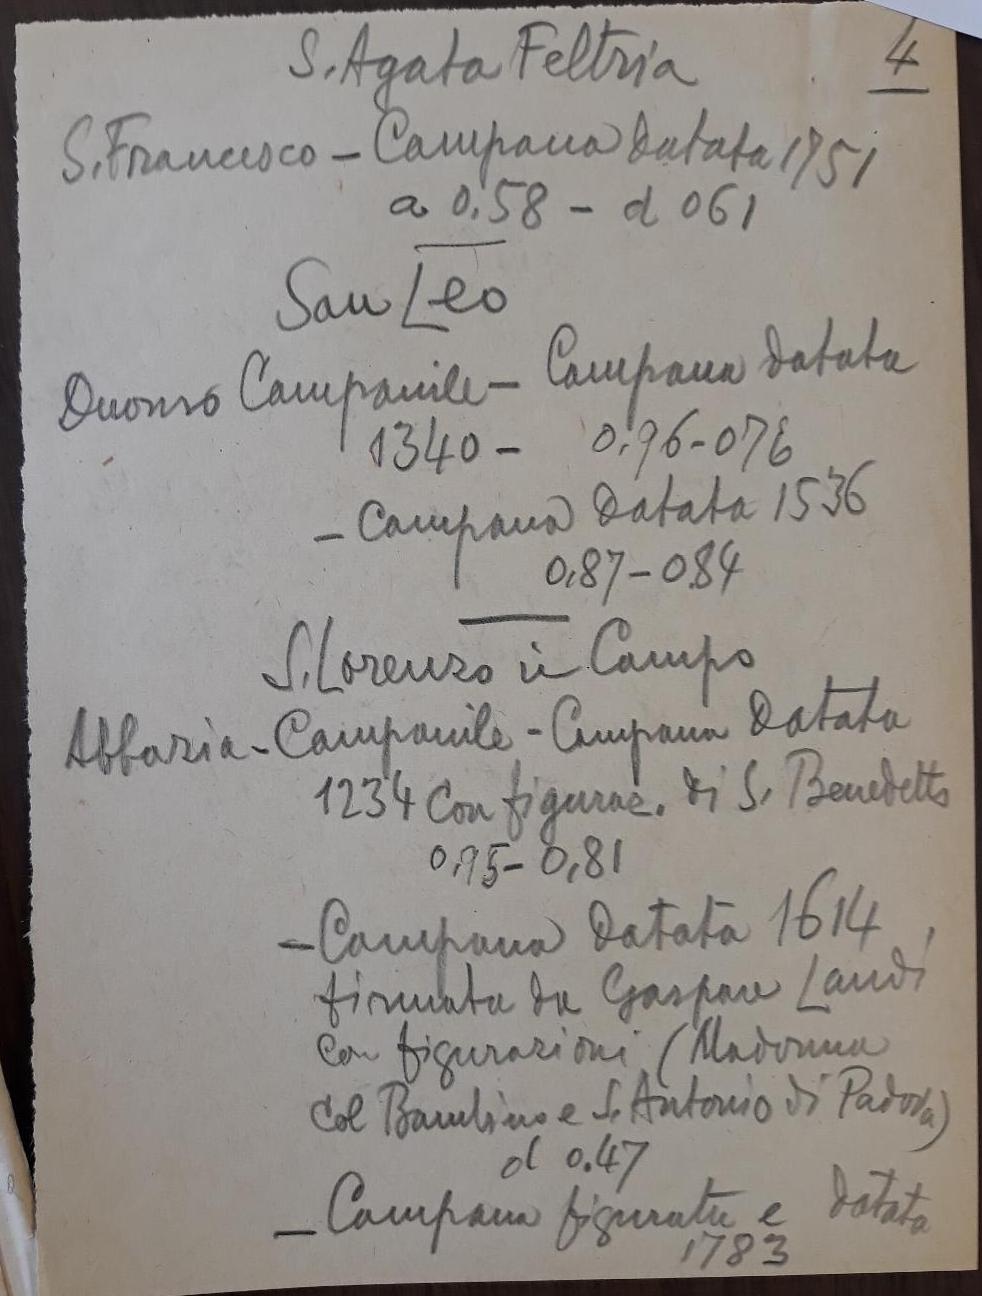 4
S. Agata Feltria
S. Francesco - Campana datata 1751
a 0,58 - d 061
San Leo
Duomo Campanile - Campana datata
1340 - 0,96-076
- Campana datata 1536
0,87-084
S. Lorenzo in Campo
Abbazia - Campanile - Campana datata
1234 con figuraz. di S. Benedetto
0,95-0,81
- Campana datata 1614
firmata da Gaspare Landi
con figurazioni (Madonna
col Bambino e S. Antonio di Padova)
d 0.47
- Campana figurata e datata
1783